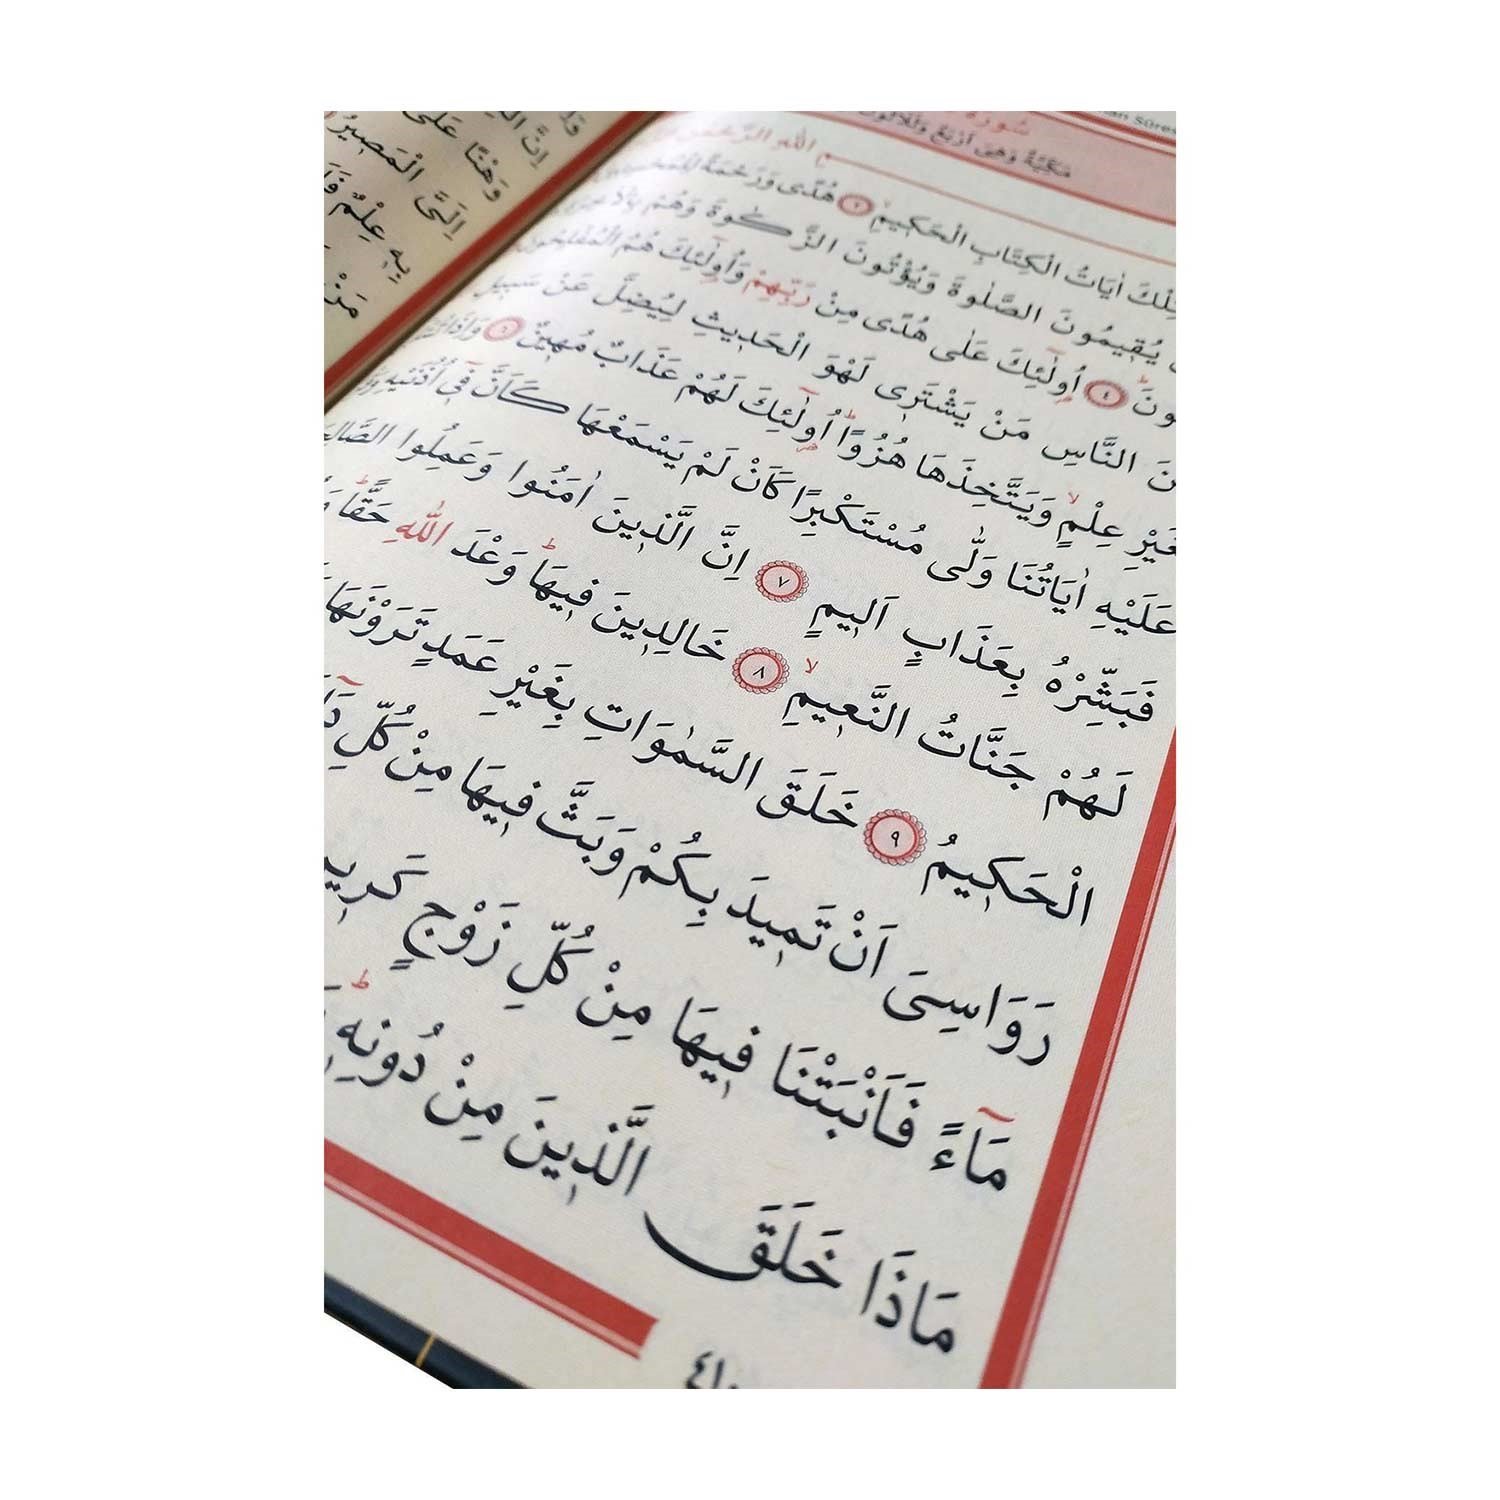 وَهْنًا عَلٰى
اِلَىَّ الْمَصِيرُ
بِهٖ عِلْمٌ
مَنْ
سُورَةُ
مَكِّيَّةٌ وَهِىَ اَرْبَعٌ وَثَلَاثُونَ
اللهِ الرَّحْمٰنِ
تِلْكَ اٰيَاتُ الْكِتَابِ الْحَكٖيمِۙ ٢ هُدًى وَرَحْمَةً
يُقٖيمُونَ الصَّلٰوةَ وَيُؤْتُونَ الزَّكٰوةَ وَهُمْ
٤ اُو۬لٰٓئِكَ عَلٰى هُدًى مِنْ رَبِّهِمْ وَاُو۬لٰٓئِكَ هُمُ الْمُفْلِحُونَ
النَّاسِ مَنْ يَشْتَرٖى لَهْوَ الْحَدٖيثِ لِيُضِلَّ عَنْ سَبٖيلِ
عِلْمٍۙ وَيَتَّخِذَهَا هُزُوًاۜ اُو۬لٰٓئِكَ لَهُمْ عَذَابٌ مُهٖينٌ ٦ وَاِذَا
عَلَيْهِ اٰيَاتُنَا وَلّٰى مُسْتَكْبِرًا كَاَنْ لَمْ يَسْمَعْهَا كَاَنَّ فٖٓى اُذُنَيْهِ
فَبَشِّرْهُ بِعَذَابٍ اَلٖيمٍ ٧ اِنَّ الَّذٖينَ اٰمَنُوا وَعَمِلُوا
لَهُمْ جَنَّاتُ النَّعٖيمِۙ ٨ خَالِدٖينَ فٖيهَاۜ وَعْدَ اللهِ حَقًّاۜ
الْحَكٖيمُ ٩ خَلَقَ السَّمٰوَاتِ بِغَيْرِ عَمَدٍ تَرَوْنَهَا
رَوَاسِىَ اَنْ تَمٖيدَ بِكُمْ وَبَثَّ فٖيهَا مِنْ كُلِّ
مَٓاءً فَاَنْبَتْنَا فٖيهَا مِنْ كُلِّ زَوْجٍ
مَاذَا خَلَقَ الَّذٖينَ مِنْ دُونِهٖۜ